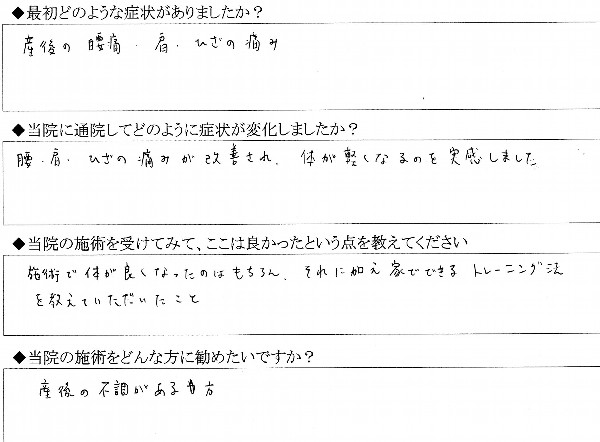 ◆最初どのような症状がありましたか？
産後の腰痛・肩・ひざの痛み
◆当院に通院してどのように症状が変化しましたか？
腰・肩・ひざの痛みが改善され、体が軽くなるのを実感しました
◆当院の施術を受けてみて、ここは良かったという点を教えてください
施術で体が良くなったのはもちろん、それに加え家でできるトレーニング法
を教えていただいたこと
◆当院の施術をどんな方に勧めたいですか？
産後の不調がある方